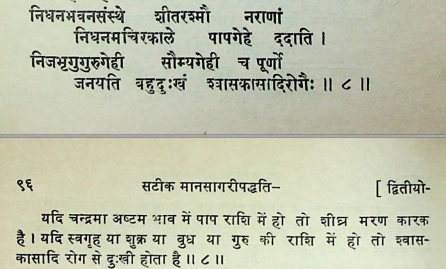 निधनभवनसंस्थे शीतरश्मौ नराणां
निधनमचिरकाले पापगेहे ददाति ।
निजभृगुगुरुगेही सौम्यगेही च पूर्णो
जनयति बहुदुःखं श्वासकासादिरोगैः ॥ ८ ॥
९६ सटीक मानसागरीपद्धति– [ द्वितीयो-
यदि चन्द्रमा अष्टम भाव में पाप राशि में हो तो शीघ्र मरण कारक
है । यदि स्वगृह या शुक्र या बुध या गुरु की राशि में हो तो श्वास-
कासादि रोग से दुःखी होता है ॥ ८ ॥